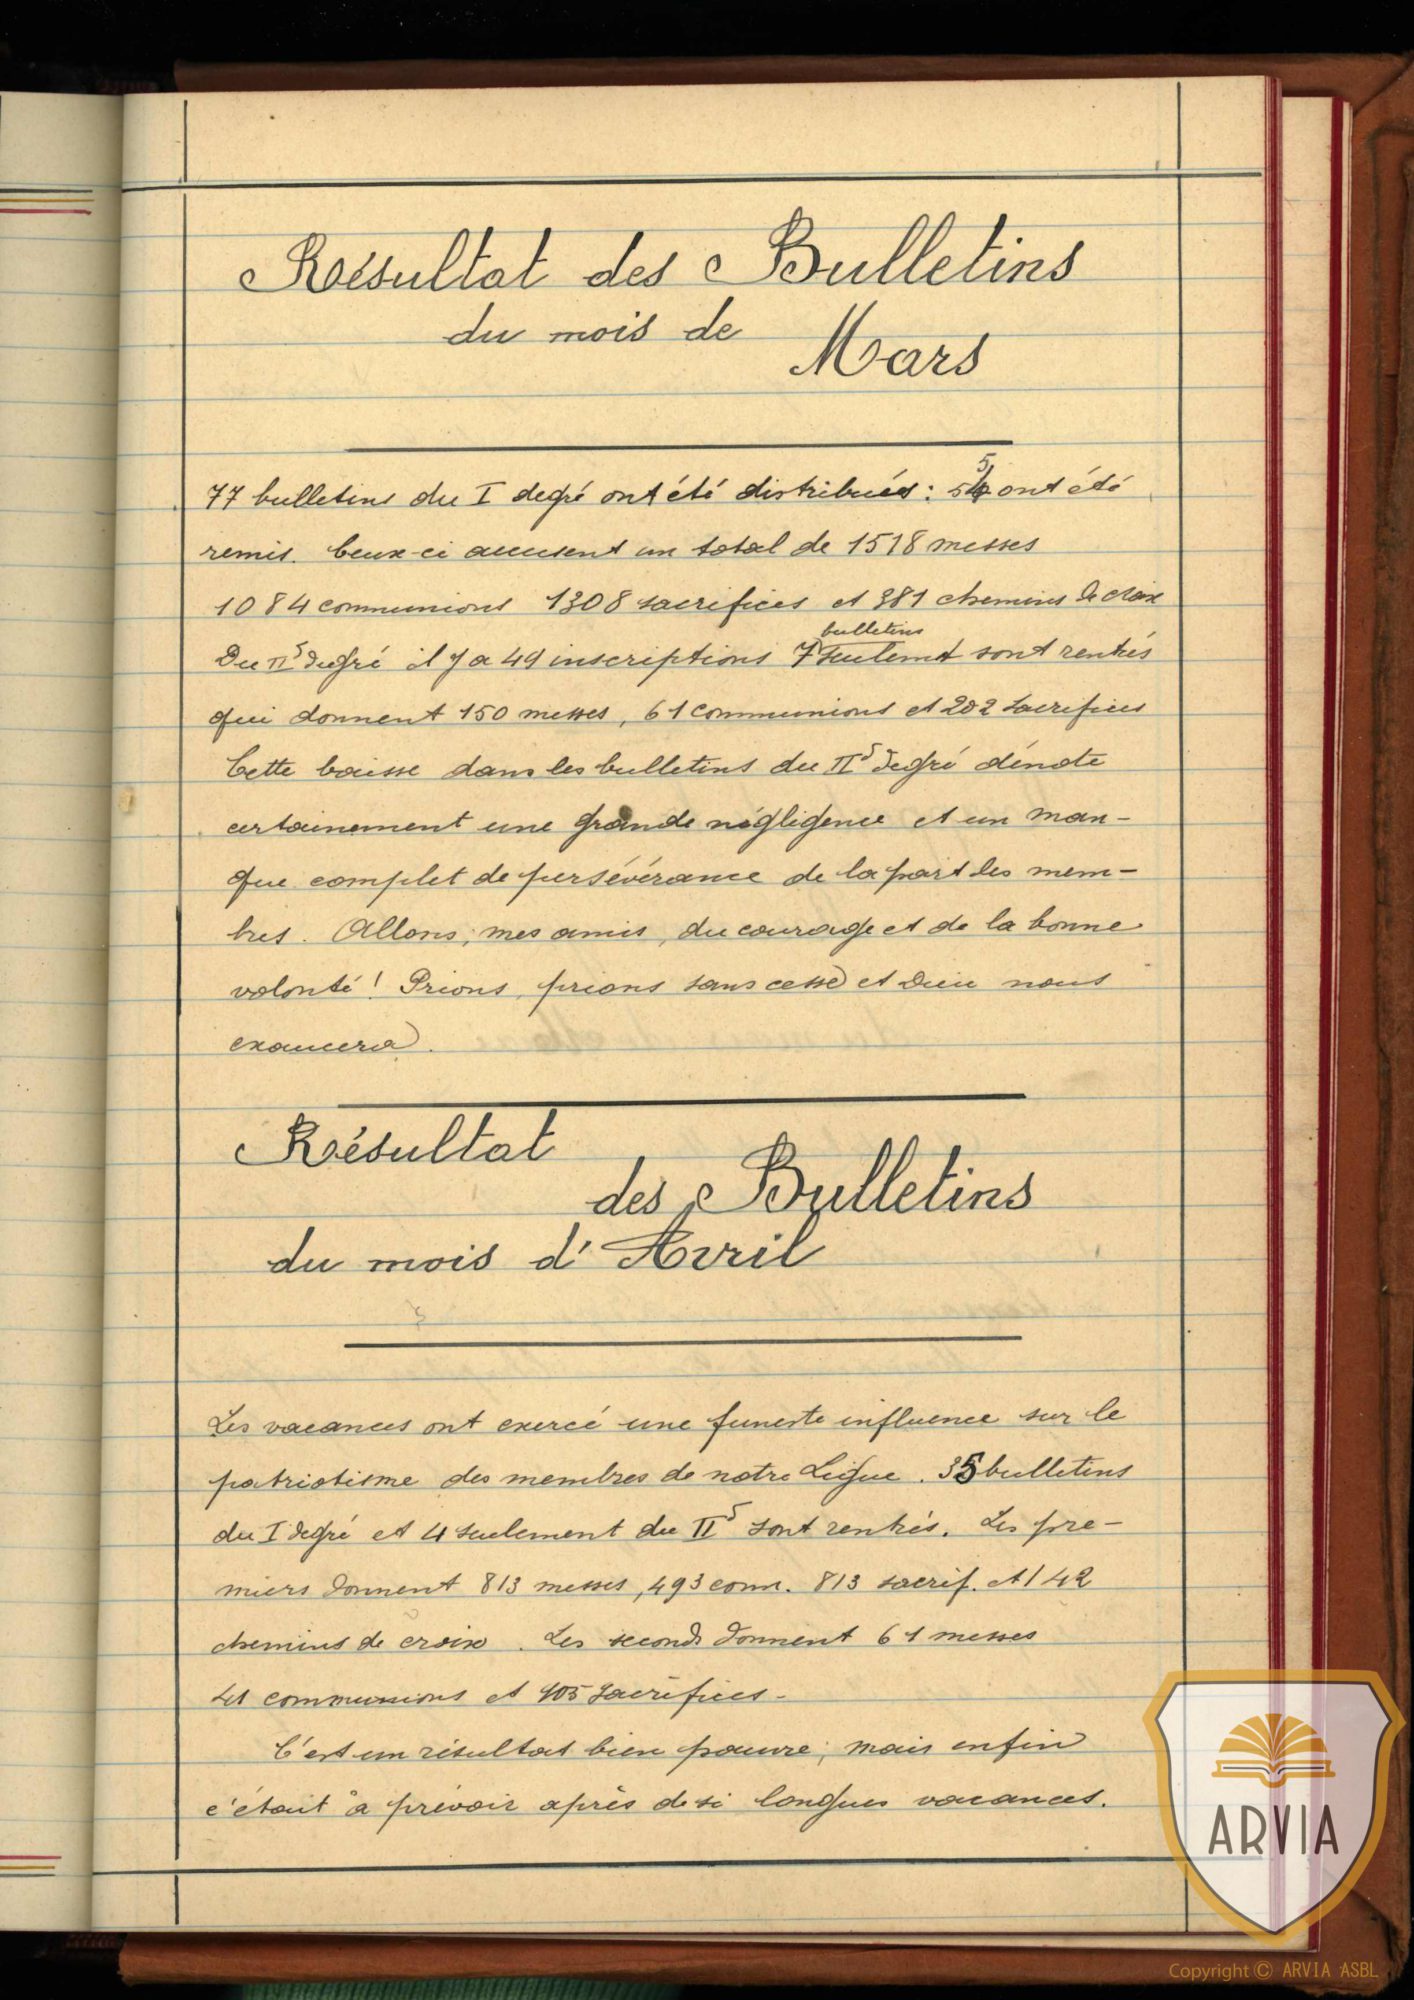 Résultat des Bulletins
du mois de
Mars
77 bulletins du I degré ont été distribués : 55 ont été
remis. Ceux-ci accusent un total de 1518 messes
1084 communions 1308 sacrifices et 381 chemins de croix
bulletins
Du IId degré il y a 49 inscriptions 7 seulemt sont rentrés
qui donnent 150 messes, 61 communions et 202 sacrifices
Cette baisse dans les bulletins du IId degré dénote
certainement une grande négligence et un man-
que complet de persévérance de la part des mem-
bres. Allons, mes amis, du courage et de la bonne
volonté ! Prions, prions sans cesse et Dieu nous
exaucera.
Résultat
des Bulletins
du mois d'Avril
Les vacances ont exercé une funeste influence sur le
patriotisme des membres de notre Ligue. 35 bulletins
du I degré et 4 seulement du IId sont rentrés. Les pre-
miers donnent 813 messes, 493 comm. 813 sacrif. et 142
chemins de croix. Les seconds donnent 61 messes
41 communions et 105 sacrifices-
C'est un résultat bien pauvre; mais enfin
c'était à prévoir après de si longues vacances.
ARVIA
Copyright © ARVIA ASBL